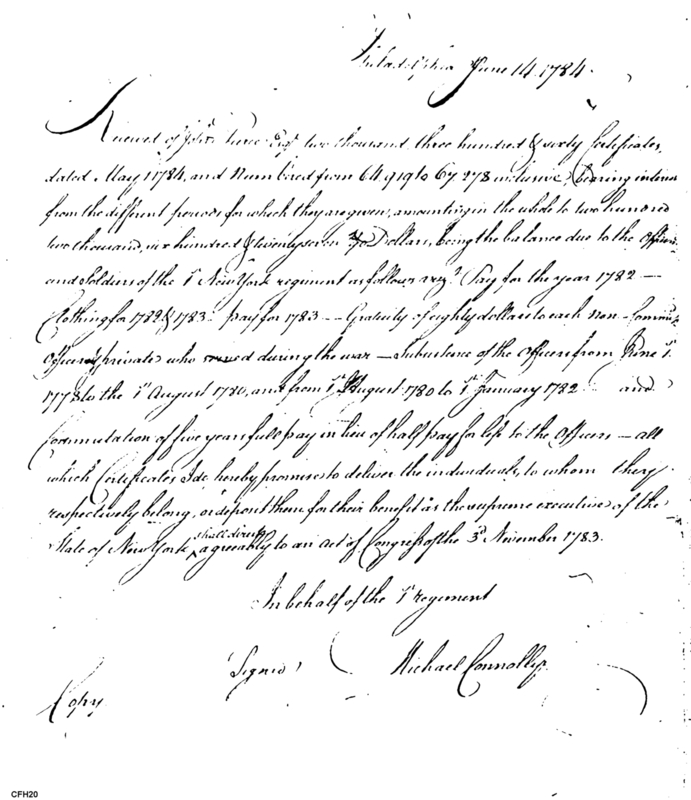 Philadelphia June 14 1784.
Received of John Pierce Esqr two thousand three hundred & sixty Certificates,
dated May 1 1784, and Numbered from 64 919 to 67 278 inclusive, bearing interest
from the different periods for which they are given, amounting in the whole to two hundred
two thousand, six hundred & twenty seven /90 Dollars, being the balance due to the Officers
and Soldiers of the 1st New York regiment as follows vizt Pay for the year 1782 —
Clothing for 1782 & 1783 pay for 1783 — Gratuity of eighty dollars to each non-Commisd
Officer & private who served during the war — Subsistence of the Officers from June 1st
1778 to the 1st August 1780, and from 1st August 1780 to 1st January 1782 and
Commutation of five years full pay in lieu of half pay for life to the Officers — all
which Certificates I do hereby promise to deliver the individuals, to whom they
respectively belong, or deposit them for their benefit as the supreme executive of the
State of New York shall direct agreeably to an act of Congress of the 3d November 1783.
In behalf of the 1st regiment
Signed Michael Connolly
Copy
CFH20